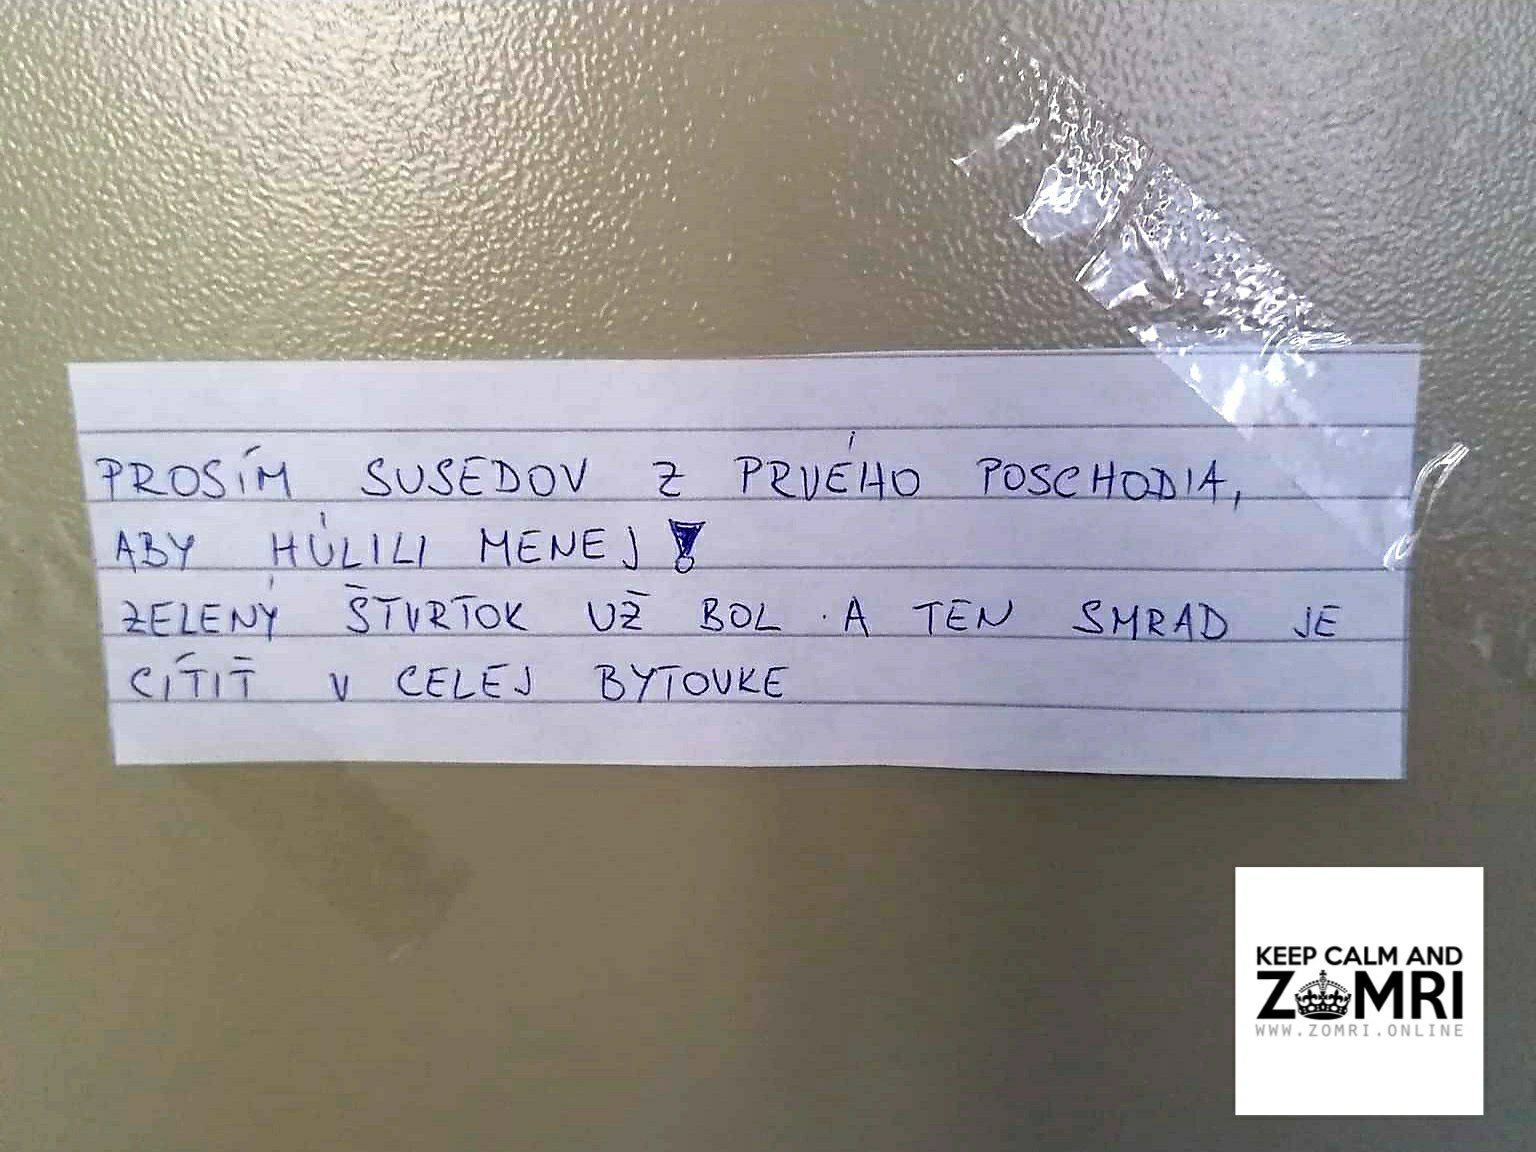 PROSÍM SUSEDOV Z PRVÉHO POSCHODIA,
ABY HÚLILI MENEJ!
ZELENÝ ŠTVRTOK UŽ BOL. A TEN SMRAD JE
CÍTIŤ V CELEJ BYTOVKE
KEEP CALM AND
ZOMRI
WWW.ZOMRI.ONLINE